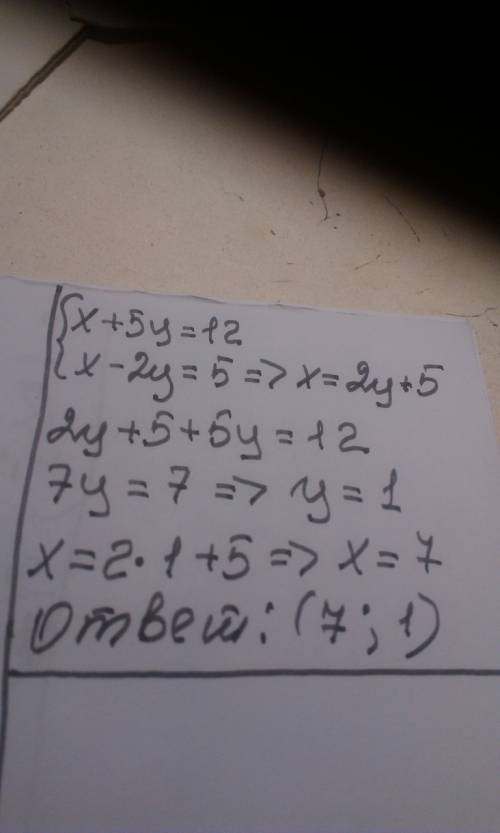 {x+5y=12
{x-2y=5=>x=2y+5
2y+5+5y=12
7y=7=>y=1
x=2·1+5=>x=7
Ответ: (7; 1)